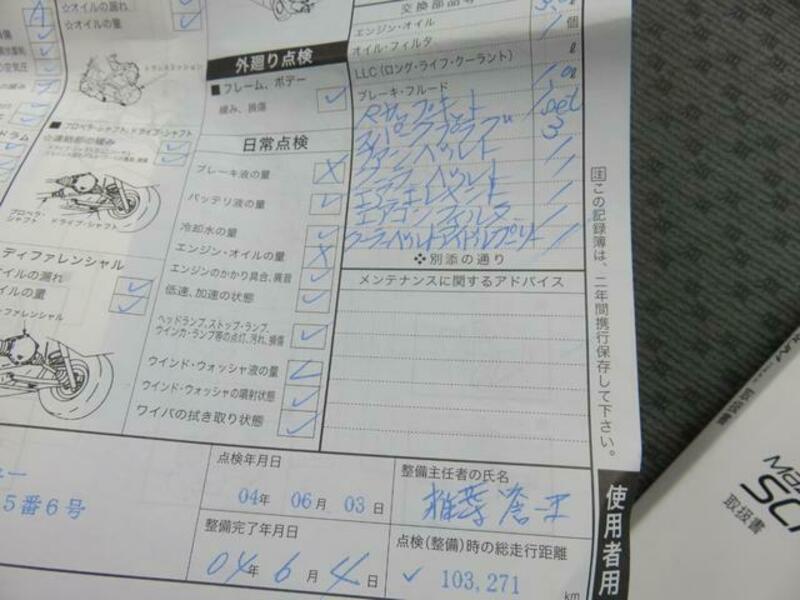 ☆オイルの漏れ
☆オイルの量
トランスミッション
■プロペラ・シャフト、ドライブ・シャフト
☆連結部の緩み
プロペラ・シャフト
ドライブ・シャフト
オイルの漏れ
オイルの量
外廻り点検
■フレーム、ボデー
緩み、損傷
日常点検
ブレーキ液の量
バッテリ液の量
冷却水の量
エンジン・オイルの量
エンジンのかかり具合、異音
低速、加速の状態
ヘッドランプ、ストップ・ランプ、
ウインカ・ランプ等の点灯、汚れ、損傷
ウインド・ウォッシャ液の量
ウインド・ウォッシャの噴射状態
ワイパの拭き取り状態
交換部品等
エンジン・オイル
オイル・フィルタ 1 個
LLC(ロング・ライフ・クーラント) ℓ
ブレーキ・フルード
Rカップキット 1set
スパークプラグ 3
ファンベルト 1
クーラーベルト 1
エアエレメント 1
エアコンフィルター 1
クーラーベルトアイドルプーリー 1
❖別添の通り
メンテナンスに関するアドバイス
注 この記録簿は、二年間携行保存して下さい。
5番6号
点検年月日
04年 06月 03日
整備完了年月日
04年 6月 4日
整備主任者の氏名
点検(整備)時の総走行距離
✓ 103,271 km
使用者用
取扱書
取扱書